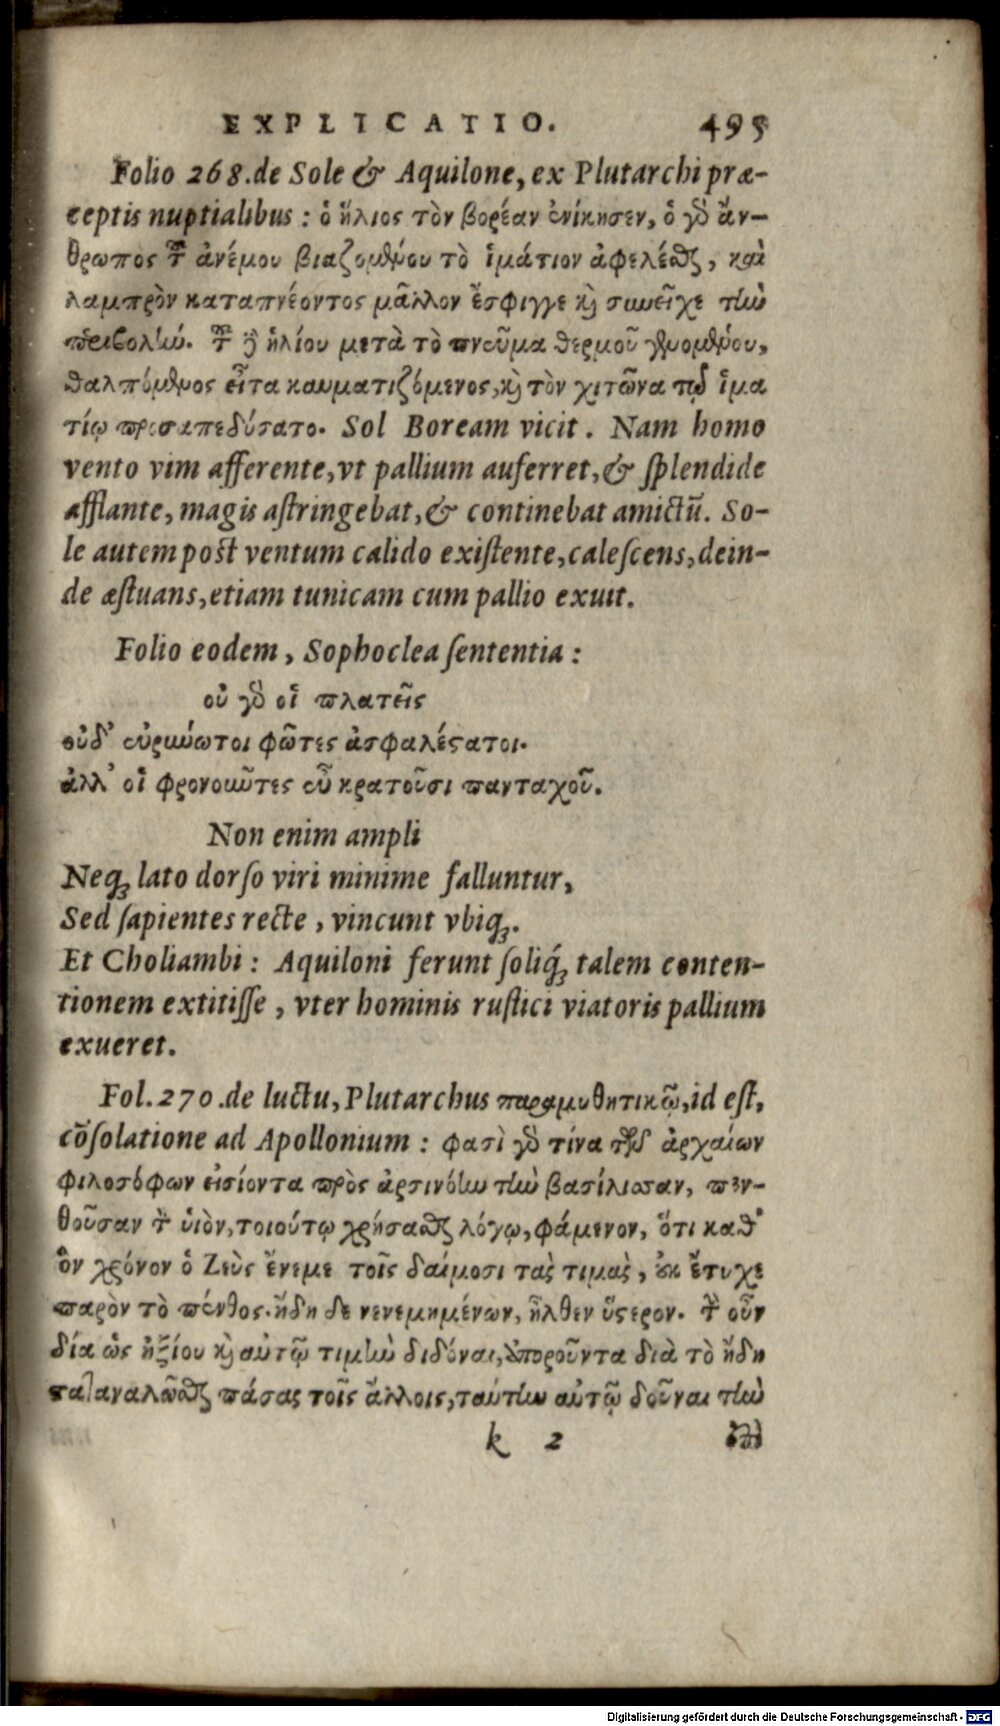 EXPLICATIO. 495
Folio 268. de Sole & Aquilone, ex Plutarchi præ-
ceptis nuptialibus: ὁ ἥλιος τὸν βορέαν ἐνίκησεν, ὁ γὸ ἄν-
θρωπος τ῀ ἀνέμου βιαζομένου τὸ ἱμάτιον ἀφελέσθαι, καὶ
λαμπρὸν καταπνέοντος μᾶλλον ἔσφιγγε κὶ συνεῖχε τίω
περιβολίω. τ῀ δὲ ἡλίου μετὰ τὸ πνεῦμα θερμοῦ γενομένου,
θαλπόμενος εἶτα καυματιζόμενος, κὶ τὸν χιτῶνα τῷ ἱμα
τίῳ προσαπεδύσατο. Sol Boream vicit. Nam homo
vento vim afferente, vt pallium auferret, & ſplendide
afflante, magis aſtringebat, & continebat amictū. So-
le autem poſt ventum calido exiſtente, caleſcens, dein-
de æſtuans, etiam tunicam cum pallio exuit.
Folio eodem, Sophoclea ſententia:
οὐ γὸ οἱ πλατεῖς
οὐδ' εὐρύνωτοι φῶτες ἀσφαλέστατοι.
ἀλλ' οἱ φρονοῦντες εὖ κρατοῦσι πανταχοῦ.
Non enim ampli
Neq; lato dorſo viri minime falluntur,
Sed ſapientes recte, vincunt vbiq;.
Et Choliambi: Aquiloni ferunt ſoliq́; talem conten-
tionem extitiſſe, vter hominis ruſtici viatoris pallium
exueret.
Fol. 270. de luctu, Plutarchus παραμυθητικῷ, id eſt,
cōſolatione ad Apollonium: φασὶ γὸ τίνα τῶν ἀρχαίων
φιλοσόφων εἰσίοντα πρὸς ἀρσινόίω τίω βασίλισσαν, πεν-
θοῦσαν τ῀ ὑιὸν, τοιούτῳ χρήσασθαι λόγῳ, φάμενον, ὅτι καθ'
ὃν χρόνον ὁ Ζεὺς ἔνεμε τοῖς δαίμοσι τὰς τιμὰς, ἐκ ἔτυχε
παρὸν τὸ πένθος. ἤδη δε νενεμημένων, ἦλθεν ὕστερον. τ῀ οὖν
δία ὡς ἠξίου κὶ αὐτῷ τιμίω διδόναι, ἀποροῦντα διὰ τὸ ἤδη
καταναλῶσθαι πάσας τοῖς ἄλλοις, ταύτίω αὐτῷ δοῦναι τίω
k 2